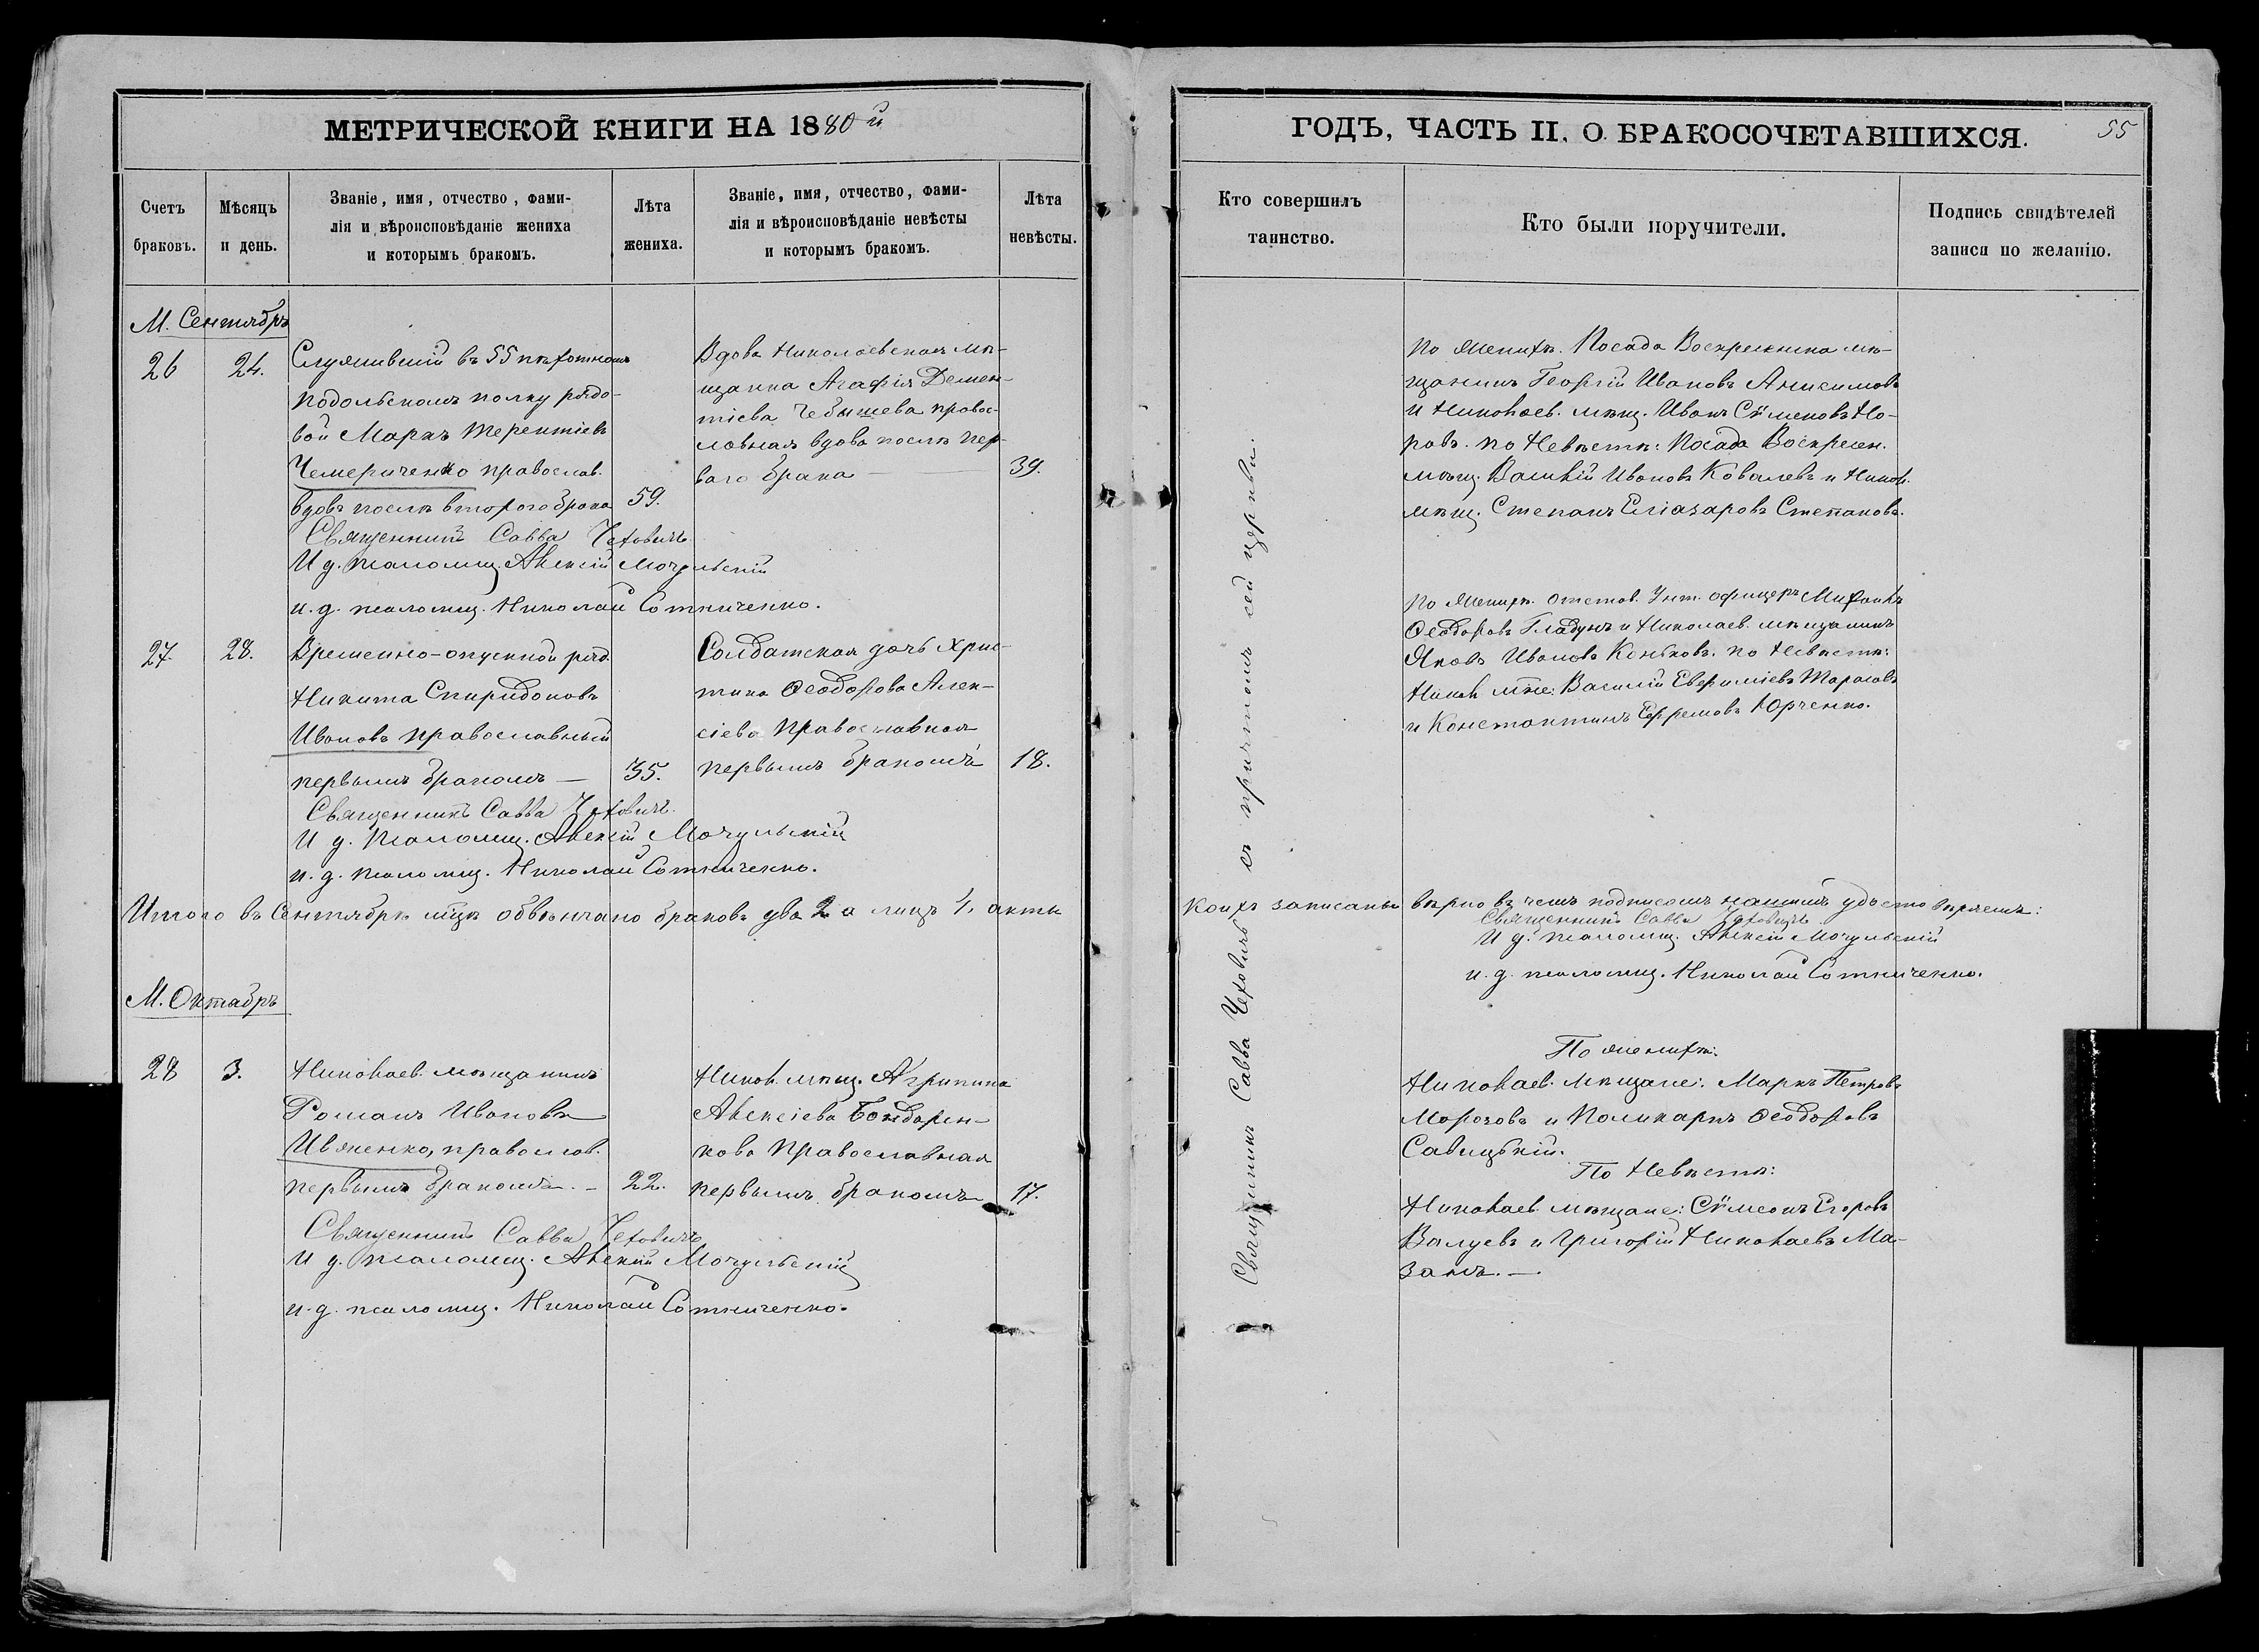 МЕТРИЧЕСКОЙ КНИГИ НА 1880й
Счетъ браковъ.
Мѣсяцъ и день.
Званіе, имя, отчество, фами-
лія и вѣроисповѣданіе жениха
и которымъ бракомъ.
Лѣта жениха.
Званіе, имя, отчество, фами-
лія и вѣроисповѣданіе невѣсты
и которымъ бракомъ.
Лѣта невѣсты.
М. Сентябрь
26
24.
Служившій въ 55 пѣхотномъ
Подольскомъ полку рядо-
вой Маркъ Терентіевъ
Чемериченко православ.
вдовъ послѣ второго брака
59.
Вдова Николаевская мѣ-
щанка Агафія Демен-
тіева Чебышева право-
славная вдова послѣ пер-
ваго брака
39.
Священникъ Савва Чехович
И д. псаломщ. Алексій Мочульскій
и. д. псаломщ. Николай Сотниченко.
27.
28.
Временно-опускной ряд.
Никита Спиридоновъ
Ивановъ православный
первымъ бракомъ —
35.
Солдатская дочь Хрис-
тина Ѳеодорова Алек-
сіева Православная
первымъ бракомъ
18.
Священникъ Савва Чехович
И д. Псаломщ. Алексій Мочульскій
и. д. псаломщ. Николай Сотниченко.
Итого въ Сентябрѣ мцѣ обвѣнчано браковъ два 2 а лицъ 4. акты
М. Октябрь
28
3.
Николаев. мѣщанинъ
Романъ Ивановъ
Ивженко, православ.
первымъ бракомъ. —
22.
Никол. мѣщ. Агрипина
Алексіева Бондарен-
кова Православная
первымъ бракомъ
17.
Священникъ Савва Чехович
И д. псаломщ. Алексій Мочульскій
и. д. псаломщ. Николай Сотниченко.
ГОДЪ, ЧАСТЬ II, О БРАКОСОЧЕТАВШИХСЯ.
55
Кто совершилъ таинство.
Кто были поручители.
Подпись свидѣтелей
записи по желанію.
Священникъ Савва Чеховичъ съ причтомъ сей церкви.
По женихѣ. Посада Воскресенска мѣ-
щанинъ Георгій Ивановъ Анисимовъ
и Николаев. мѣщ. Иванъ Сѵмеоновъ Но-
ровъ. по Невѣстѣ: Посада Воскресен.
мѣщ. Василій Ивановъ Ковалевъ и Никол.
мѣщ. Степанъ Еліазаровъ Степановъ.
По женихѣ. отстав. Унт. офицеръ Михаилъ
Ѳеодоровъ Гладунъ и Николаев. мѣщанинъ
Яковъ Ивановъ Коньковъ. по Невѣстѣ:
Никол мѣщ: Василій Евфиміевъ Тарасовъ
и Константинъ Ефремовъ Юрченко.
коихъ записаны вѣрно въ чемъ подписомъ нашимъ удостовѣряемъ:
Священникъ Савва Чехович
И д. псаломщ. Алексій Мочульскій
и. д. псаломщ. Николай Сотниченко.
По женихѣ:
Николаев. мѣщане: Маркъ Петровъ
Морозовъ и Поликарпъ Ѳеодоровъ
Савицькій.
По Невѣстѣ:
Николаев мѣщане: Сѵмеонъ Егоровъ
Валуевъ и Григорій Николаевъ Ма-
занъ. —